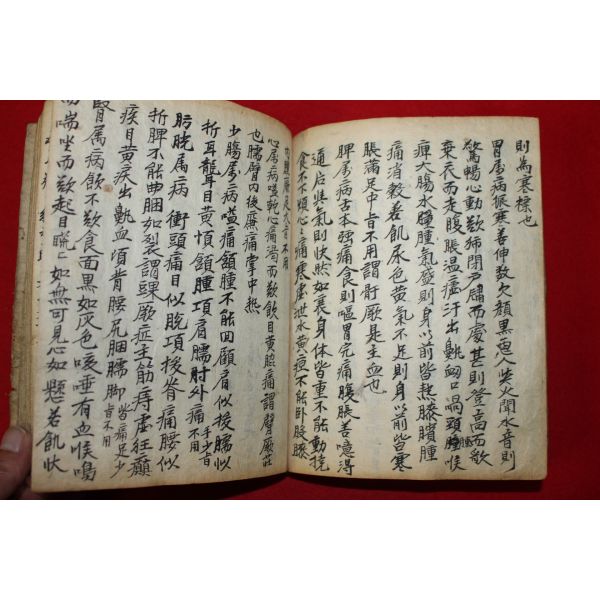 則為寒慄也
胃属病振寒善伸数欠顔黑惡人與火聞水音則
驚惕心動欲獨閉戶牖而處甚則登高而歌
棄衣而走腹脹温瘧汗出鼽衄口喎頸腫喉
痺大腸水腫腫氣盛則身以前皆熱膝臏腫
痛消穀善飢尿色黄氣不足則身以前皆寒
脹滿足中皆不用謂骭厥是主血也
脾属病舌本强痛食則嘔胃完痛腹脹善噫得
通后與氣則快然如衰身体皆重不能動撓
食不下煩心心痛寒虚泄水黄疸不能卧股膝
内腫痛足大旨不用
心属病嗌乾心痛渴而欲飲目黄脇痛謂臂厥症
也臑臂内後廉痛掌中热
少腸属病嗌痛頷腫不能回顧肩似援臑似
折耳聾目黄傾頷腫項肩臑肘外痛手少旨不用
膀胱属病衝頭痛目似脱項援脊痛腰似
折脾不能曲膕如裂謂踝厥症主筋痔虚狂癲
疾目黄淚出鼽血項背腰尻膕臑脚皆痛足少旨不用
腎属病飲不欲食面黑如灰色咳唾有血喉鳴
而喘坐而欲起目䀮䀮如無可見心如懸若飢状